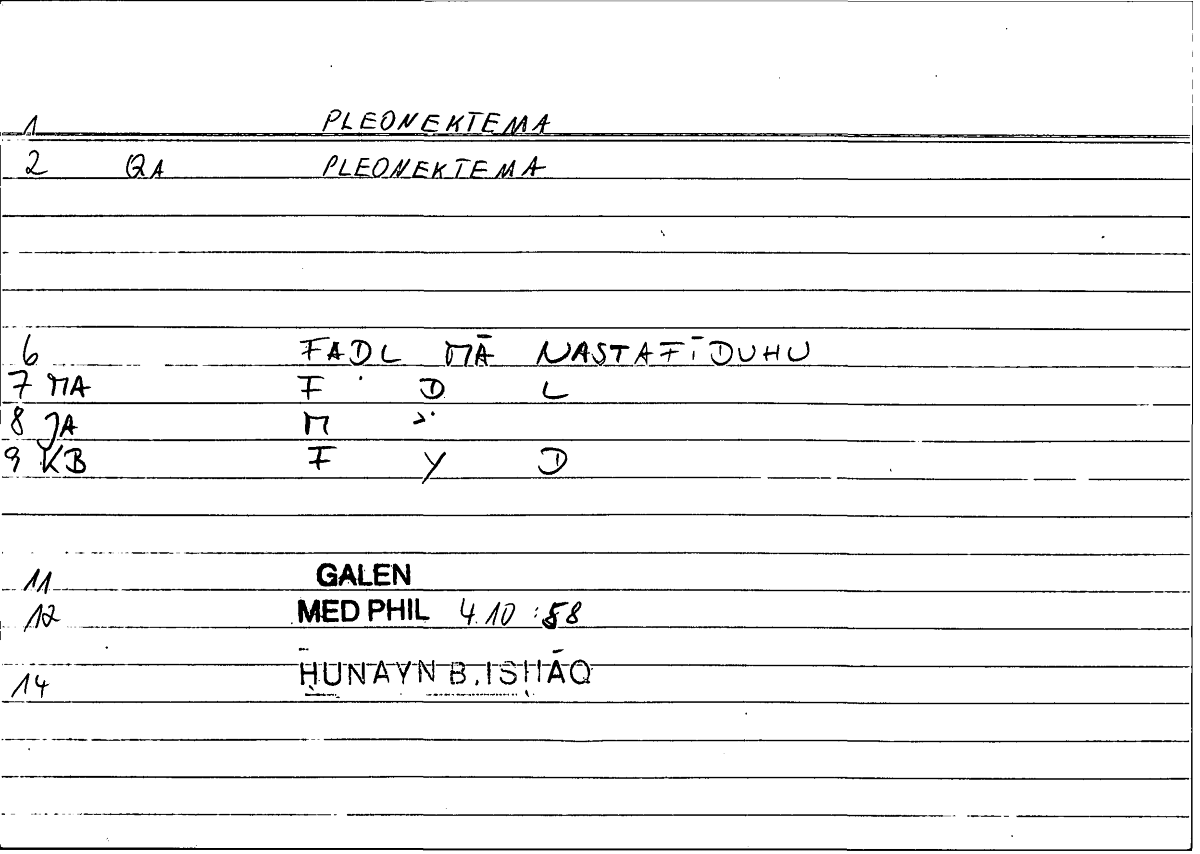 1 PLEONEKTEMA
2 QA PLEONEKTEMA
6 FADL MĀ NASTAFĪDUHU
7 MA F D L
8 JA M
9 KB F Y D
11 GALEN
12 MED PHIL 4.10 :58
14 ḤUNAYN B. ISḤĀQ